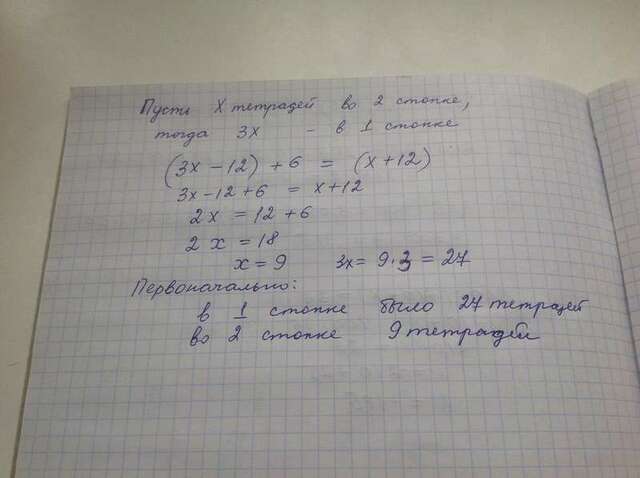 Пусть х тетрадей во 2 стопке,
тогда 3х - в 1 стопке
(3х - 12) + 6 = (х + 12)
3х - 12 + 6 = х + 12
2х = 12 + 6
2 х = 18
х = 9 3х = 9 · 3 = 27
Первоначально:
в 1 стопке было 27 тетрадей
во 2 стопке 9 тетрадей